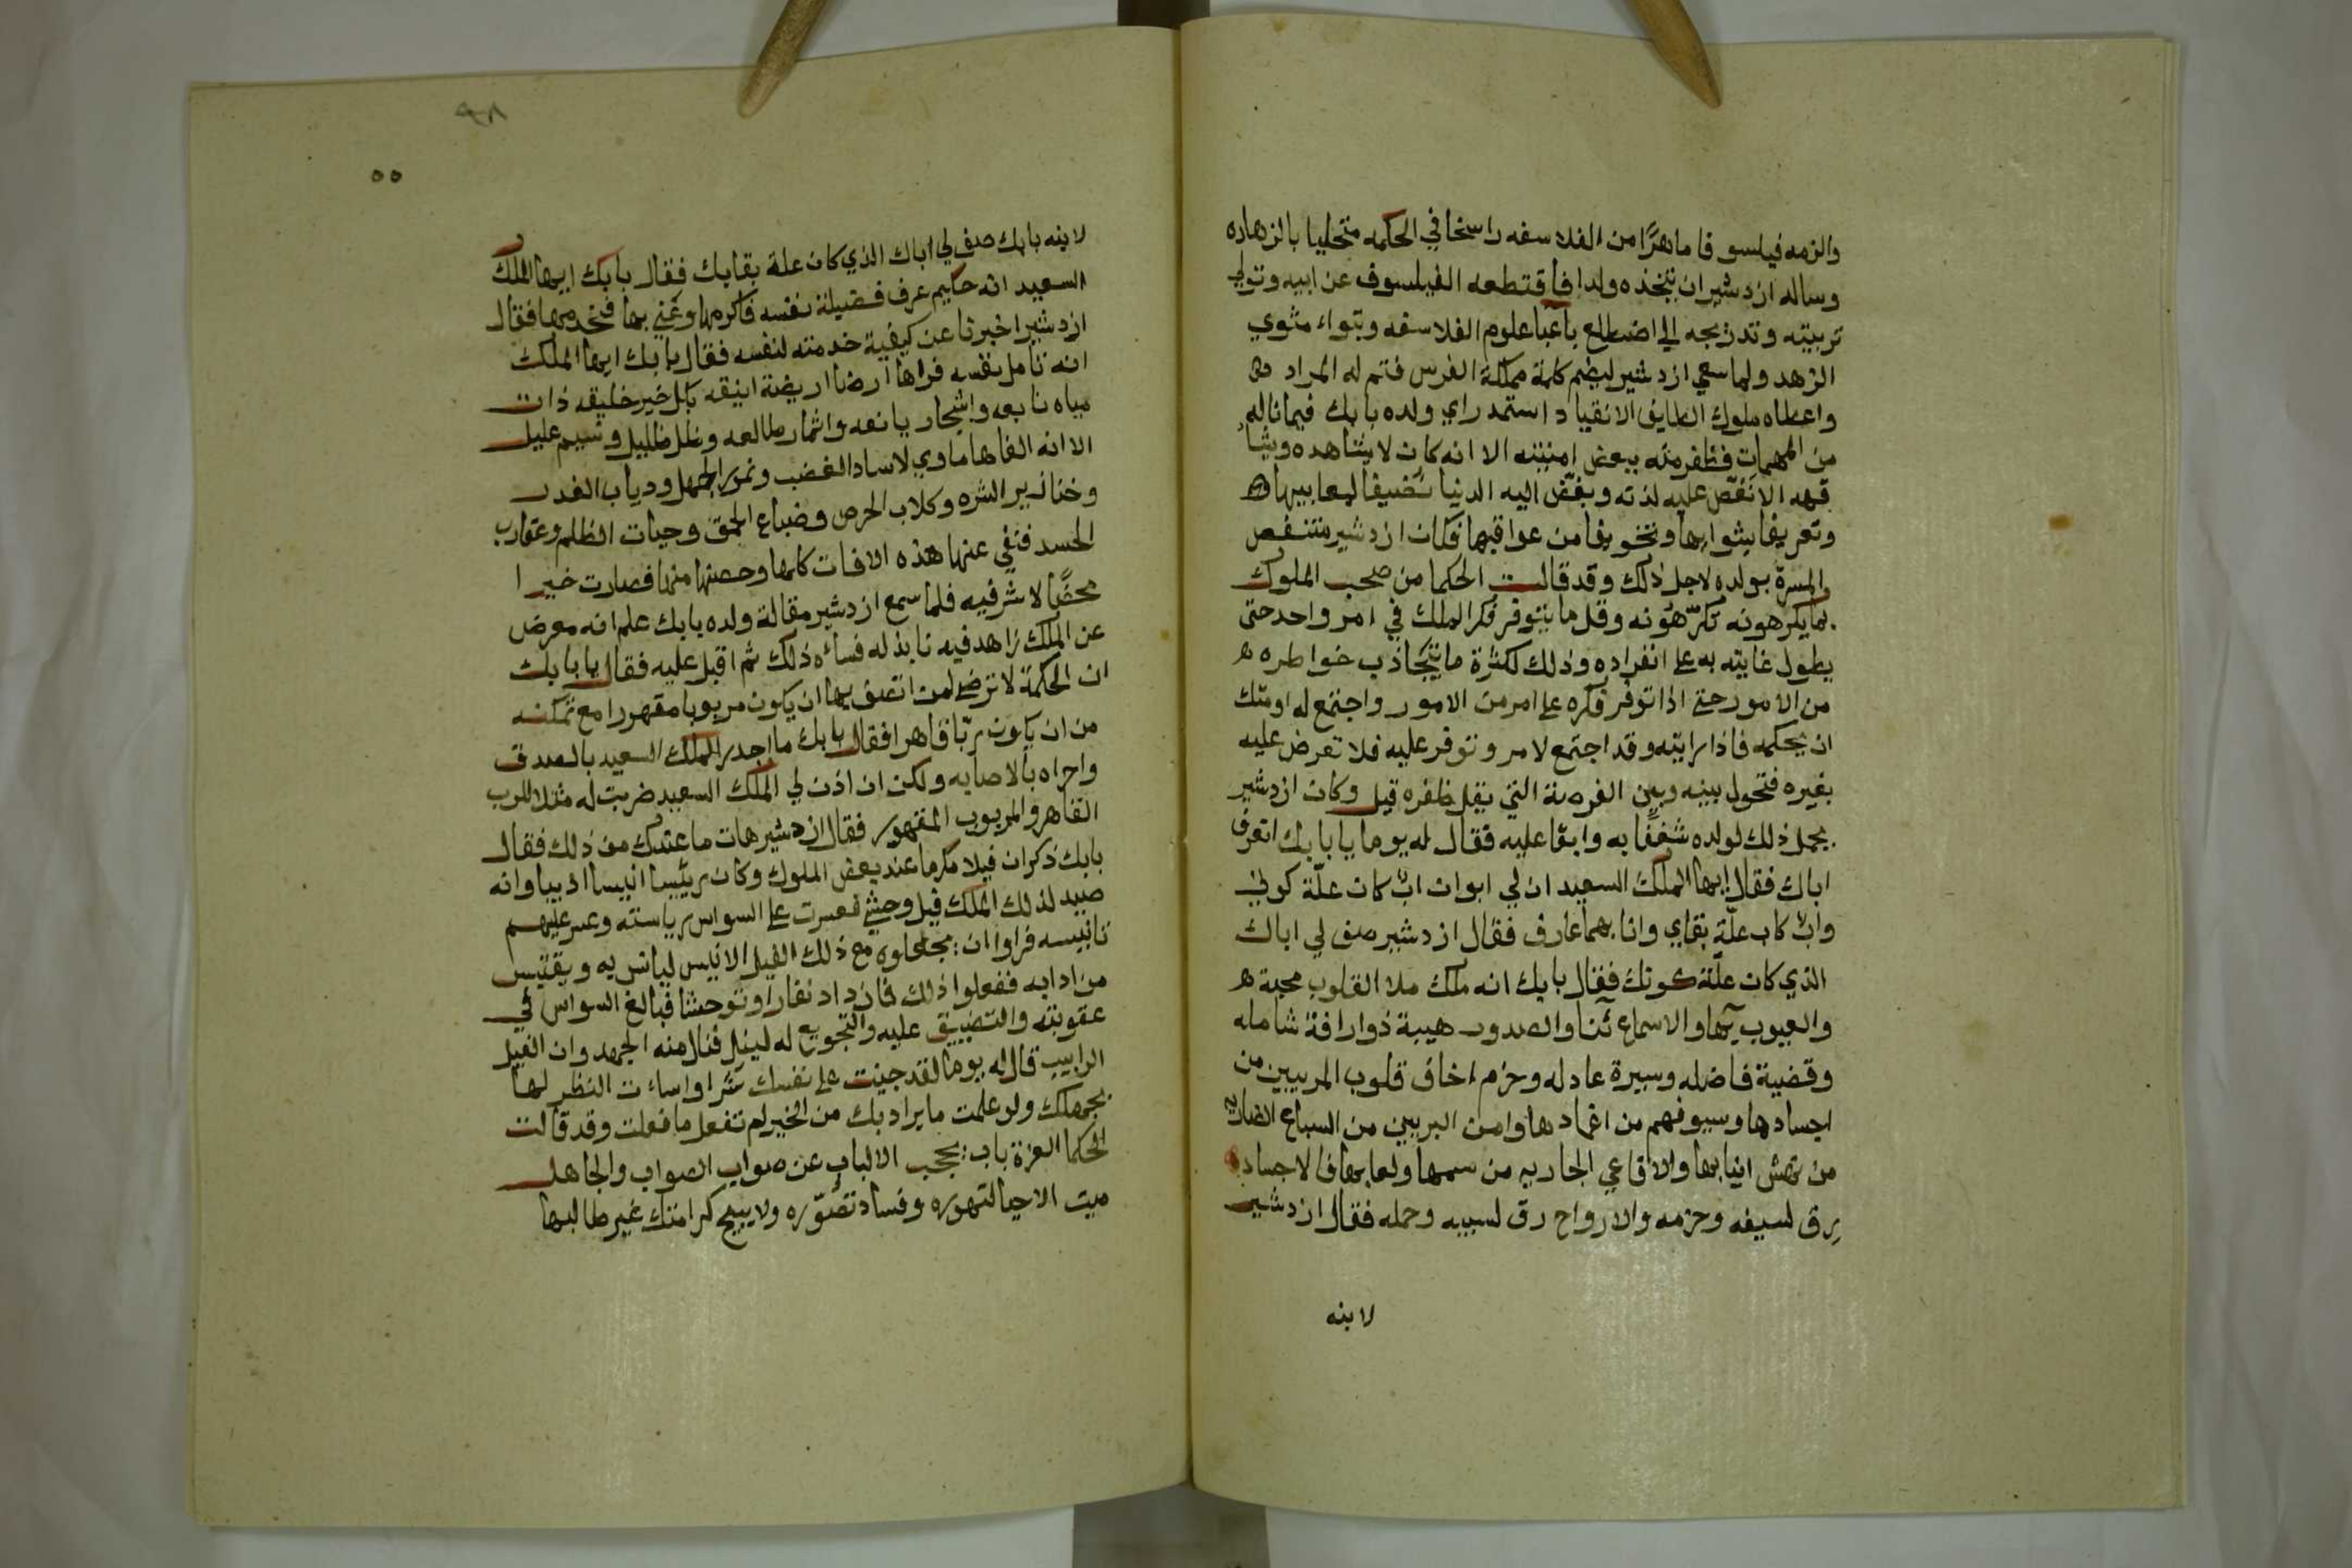 والزمه فيلسوفا ماهرًا من الفلاسفه راسخا في الحكمه متحليا بالزهاده
وساله ازدشير ان يتخذه ولدا فاقتطعه الفيلسوف عن ابيه وتولي
تربيته وتدريجه الي اضطلع باعبا علوم الفلاسفه وتبواء مثوي
الزهد ولما سعي ازدشير ليضم كلمة مملكة الفرس فتم له المراد
واعطاه ملوك الطايف الانقياد استمد راي ولده بابك فيما ناله
من المهمات فظفر منه ببعض امنيته الا انه كان لا يشاهده ويشا
فهه الا نغّص عليه لذته وبغّض اليه الدنيا تضيفا لمعاييبها
وتعريفا بشوايبها وتخويفا من عواقبها فكان ازدشير متنغص
المسرة بولده لاجل ذلك وقد قالت الحكما من صحب الملوك
بما يكرهونه تكرّهونه وقل ما يتوفر فكر الملك في امر واحد حتى
يطول غايته به علي انفراده وذلك لكثرة ما يتجاذب خواطره
من الامور حتي اذا توفر فكره علي امر من الامور واجتمع له اوشك
ان يحكمه فاذا رايته وقد اجتمع لامر وتوفر عليه فلا تعرض عليه
بغيره فتحول بينه وبين الفرصة التي يقل ظفره قيل وكان ازدشير
يحمل ذلك لولده شغفًا به وابقا عليه فقال له يوما يا بابك اتعرف
اباك فقال ايها الملك السعيد ان لي ابوان ابٌ كان علّة كوني
وابٌ كان علّة بقاي وانا بهما عارف فقال ازدشير صف لي اباك
الذي كان علّة كونك فقال بابك انه ملك ملا القلوب محبة
والعيوب بها والاسماع ثنا والصدور هيبة ذو رافة شامله
وقضية فاضله وسيرة عادله وحزم اخاف قلوب المريبين من
اجسادها وسيوفهم من اغمادها وامن البريين من السباع الضاريه
من نهش انيابها والافاعي الجاريه من سمها ولعابها فالاجساد
رق لسيفه وحزمه والارواح رق لسيبه وحمله فقال ازدشير
لابنه
٩٨
٥٥
لابنه بابك صف لي اباك الذي كان علة بقايك فقال بابك ايها الملك
السعيد انه حكيم عرف فضيلة نفسه فاكرمها وعني بها فخدمها فقال
ازدشير اخبرنا عن كيفية خدمته لنفسه فقال بابك ايها الملك
انه تامل نفسه فراها ارضا اريضة انيقه بكل خير خليقه ذات
مياه نابعه واشجار يانعه واثمار طالعه وظل ظليل ونسيم عليل
الا انه الفاها ماوي لاساد الغضب ونمور الجهل ودياب الغدر
وخنازير الشره وكلاب الحرص وضباع الحمق وحيات الظلم وعقارب
الحسد فنفي عنها هذه الافات كلها وحصنها منها فصارت خيرا
محضًا لا شر فيه فلما سمع ازدشير مقالة ولده بابك علم انه معرض
عن الملك زاهد فيه نابذ له فساءه ذلك ثم اقبل عليه فقال يا بابك
ان الحكمة لا ترضي لمن اتصف بها ان يكون مربوبا مقهورا مع تمكنه
من ان يكون ربّا قاهرا فقال بابك ما اجدر الملك السعيد بالصدق
واحراه بالاصابه ولكن ان اذن لي الملك السعيد ضربت له مثلا للرب
القاهر والمربوب المقهور فقال ازدشير هات ما عندك من ذلك فقال
بابك ذكر ان فيلا مكرما عند بعض الملوك وكان ريّسا انيسا اديبا وانه
صيد لذلك الملك فيل وحشي فعسرت علي السواس رياسته وعسر عليهم
تانيسه فراوا ان يجعلوه مع ذلك الفيل الانيس ليانس به ويقتبس
من ادابه ففعلوا ذلك فازداد نفارا وتوحشا فبالغ السواس في
عقوبته والتضييق عليه والتجويع له ليذل فنال منه الجهد وان الفيل
الرابيب قال له يوما لقد جنيت علي نفسك شرا واساءت النظر لها
بجهلك ولو علمت ما يراد بك من الخير لم تفعل ما فعلت وقد قالت
الحكما العزة باب يحجب الالباب عن صواب الصواب والجاهل
ميت الاحيا لتهوره وفساد تصوّره ولا يبيح كرامتك غير طالبها